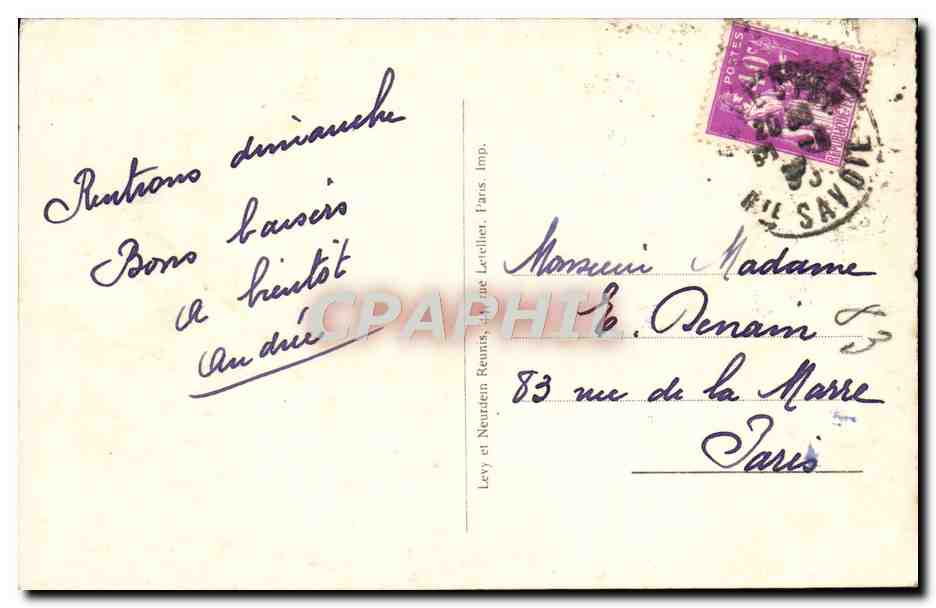 Rentrons dimanche
Bons baisers
a bientôt
Andrée
Levy et Neurdein Reunis, rue Letellier, Paris. Imp.
CPAPHIL
POSTES
40c
SAVOIE
Monsieur Madame
E. Denain
83 rue de la Marre
Paris
83